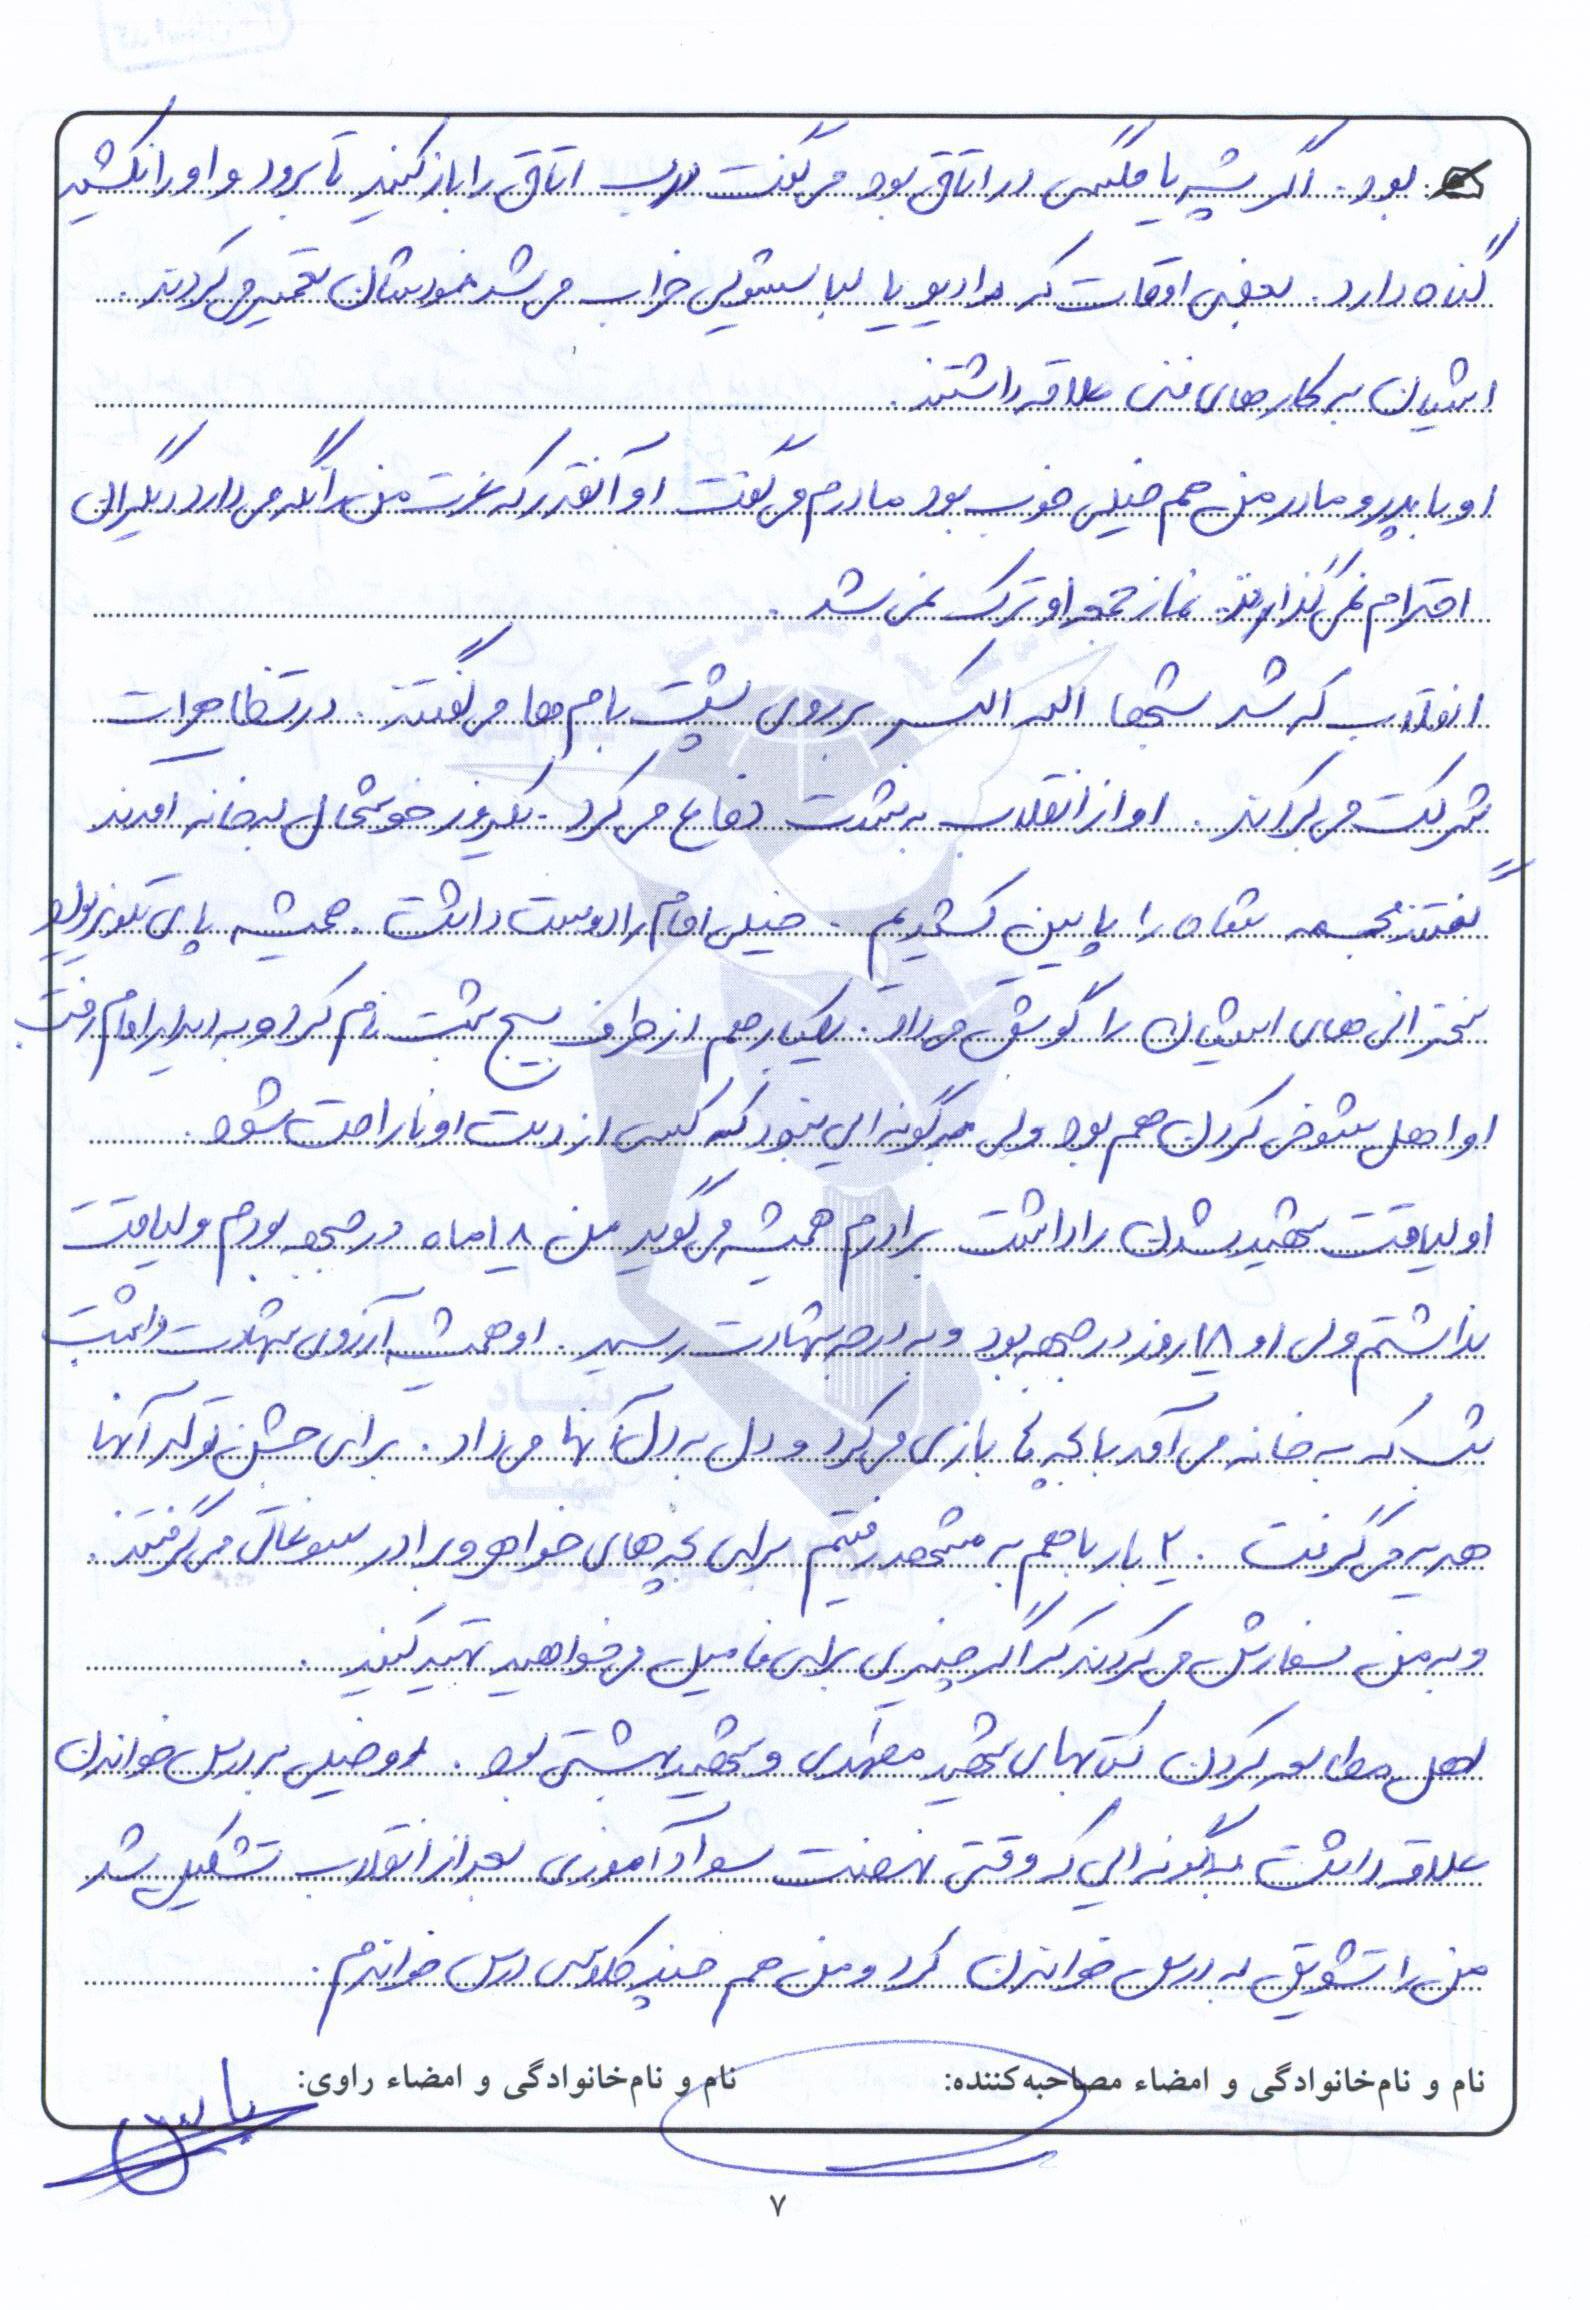 بود. اگر پشه یا مگسی در اتاق بود می گفت درب اتاق را باز کنید تا برود و او را نکشید
گناه دارد. بعضی اوقات که رادیو یا لباسشویی خراب می شد خودشان تعمیر می کردند.
ایشان به کارهای فنی علاقه داشتند.
او با پدر و مادر من هم خیلی خوب بود مادرم می گفت او آنقدر که عزت من را نگه می دارد دیگران
احترام نمی گذارند. نماز جمعه او ترک نمی شد.
انقلاب که شد شبها الله اکبر بر روی پشت بام ها می گفتند. در تظاهرات
شرکت می کردند. او از انقلاب به شدت دفاع می کرد. یک روز خوشحال به خانه آمدند
گفتند مجسمه شاه را پایین کشیدیم. خیلی امام را دوست داشت. همیشه پای تلویزیون
سخنرانی های ایشان را گوش می داد. یکبار هم از طرف بسیج ثبت نام کرد و به دیدار امام رفت
او اهل شوخی کردن هم بود ولی به گونه ایی نبود که کسی از دست او ناراحت شود.
او لیاقت شهید شدن را داشت برادرم همیشه می گوید من ۱۸ ماه در جبهه بودم و لیاقت
نداشتم ولی او ۱۸ روز در جبهه بود و به درجه شهادت رسید. او همیشه آرزوی شهادت داشت
شب که به خانه می آمد با بچه ها بازی می کرد و دل به دل آنها می داد. برای جشن تولد آنها
هدیه می گرفت. ۲ بار با هم به مشهد رفتیم برای بچه های خواهر و برادر سوغاتی می گرفتند.
و به من سفارش می کردند که اگر چیزی برای فامیل می خواهید تهیه کنید.
اهل مطالعه کردن کتابهای شهید مطهری و شهید بهشتی بود. او خیلی به درس خواندن
علاقه داشت به گونه ایی که وقتی نهضت سوادآموزی بعد از انقلاب تشکیل شد
من را تشویق به درس خواندن کرد و من هم چند کلاس درس خواندم.
نام و نام‌خانوادگی و امضاء مصاحبه‌کننده: نام و نام‌خانوادگی و امضاء راوی:
۷